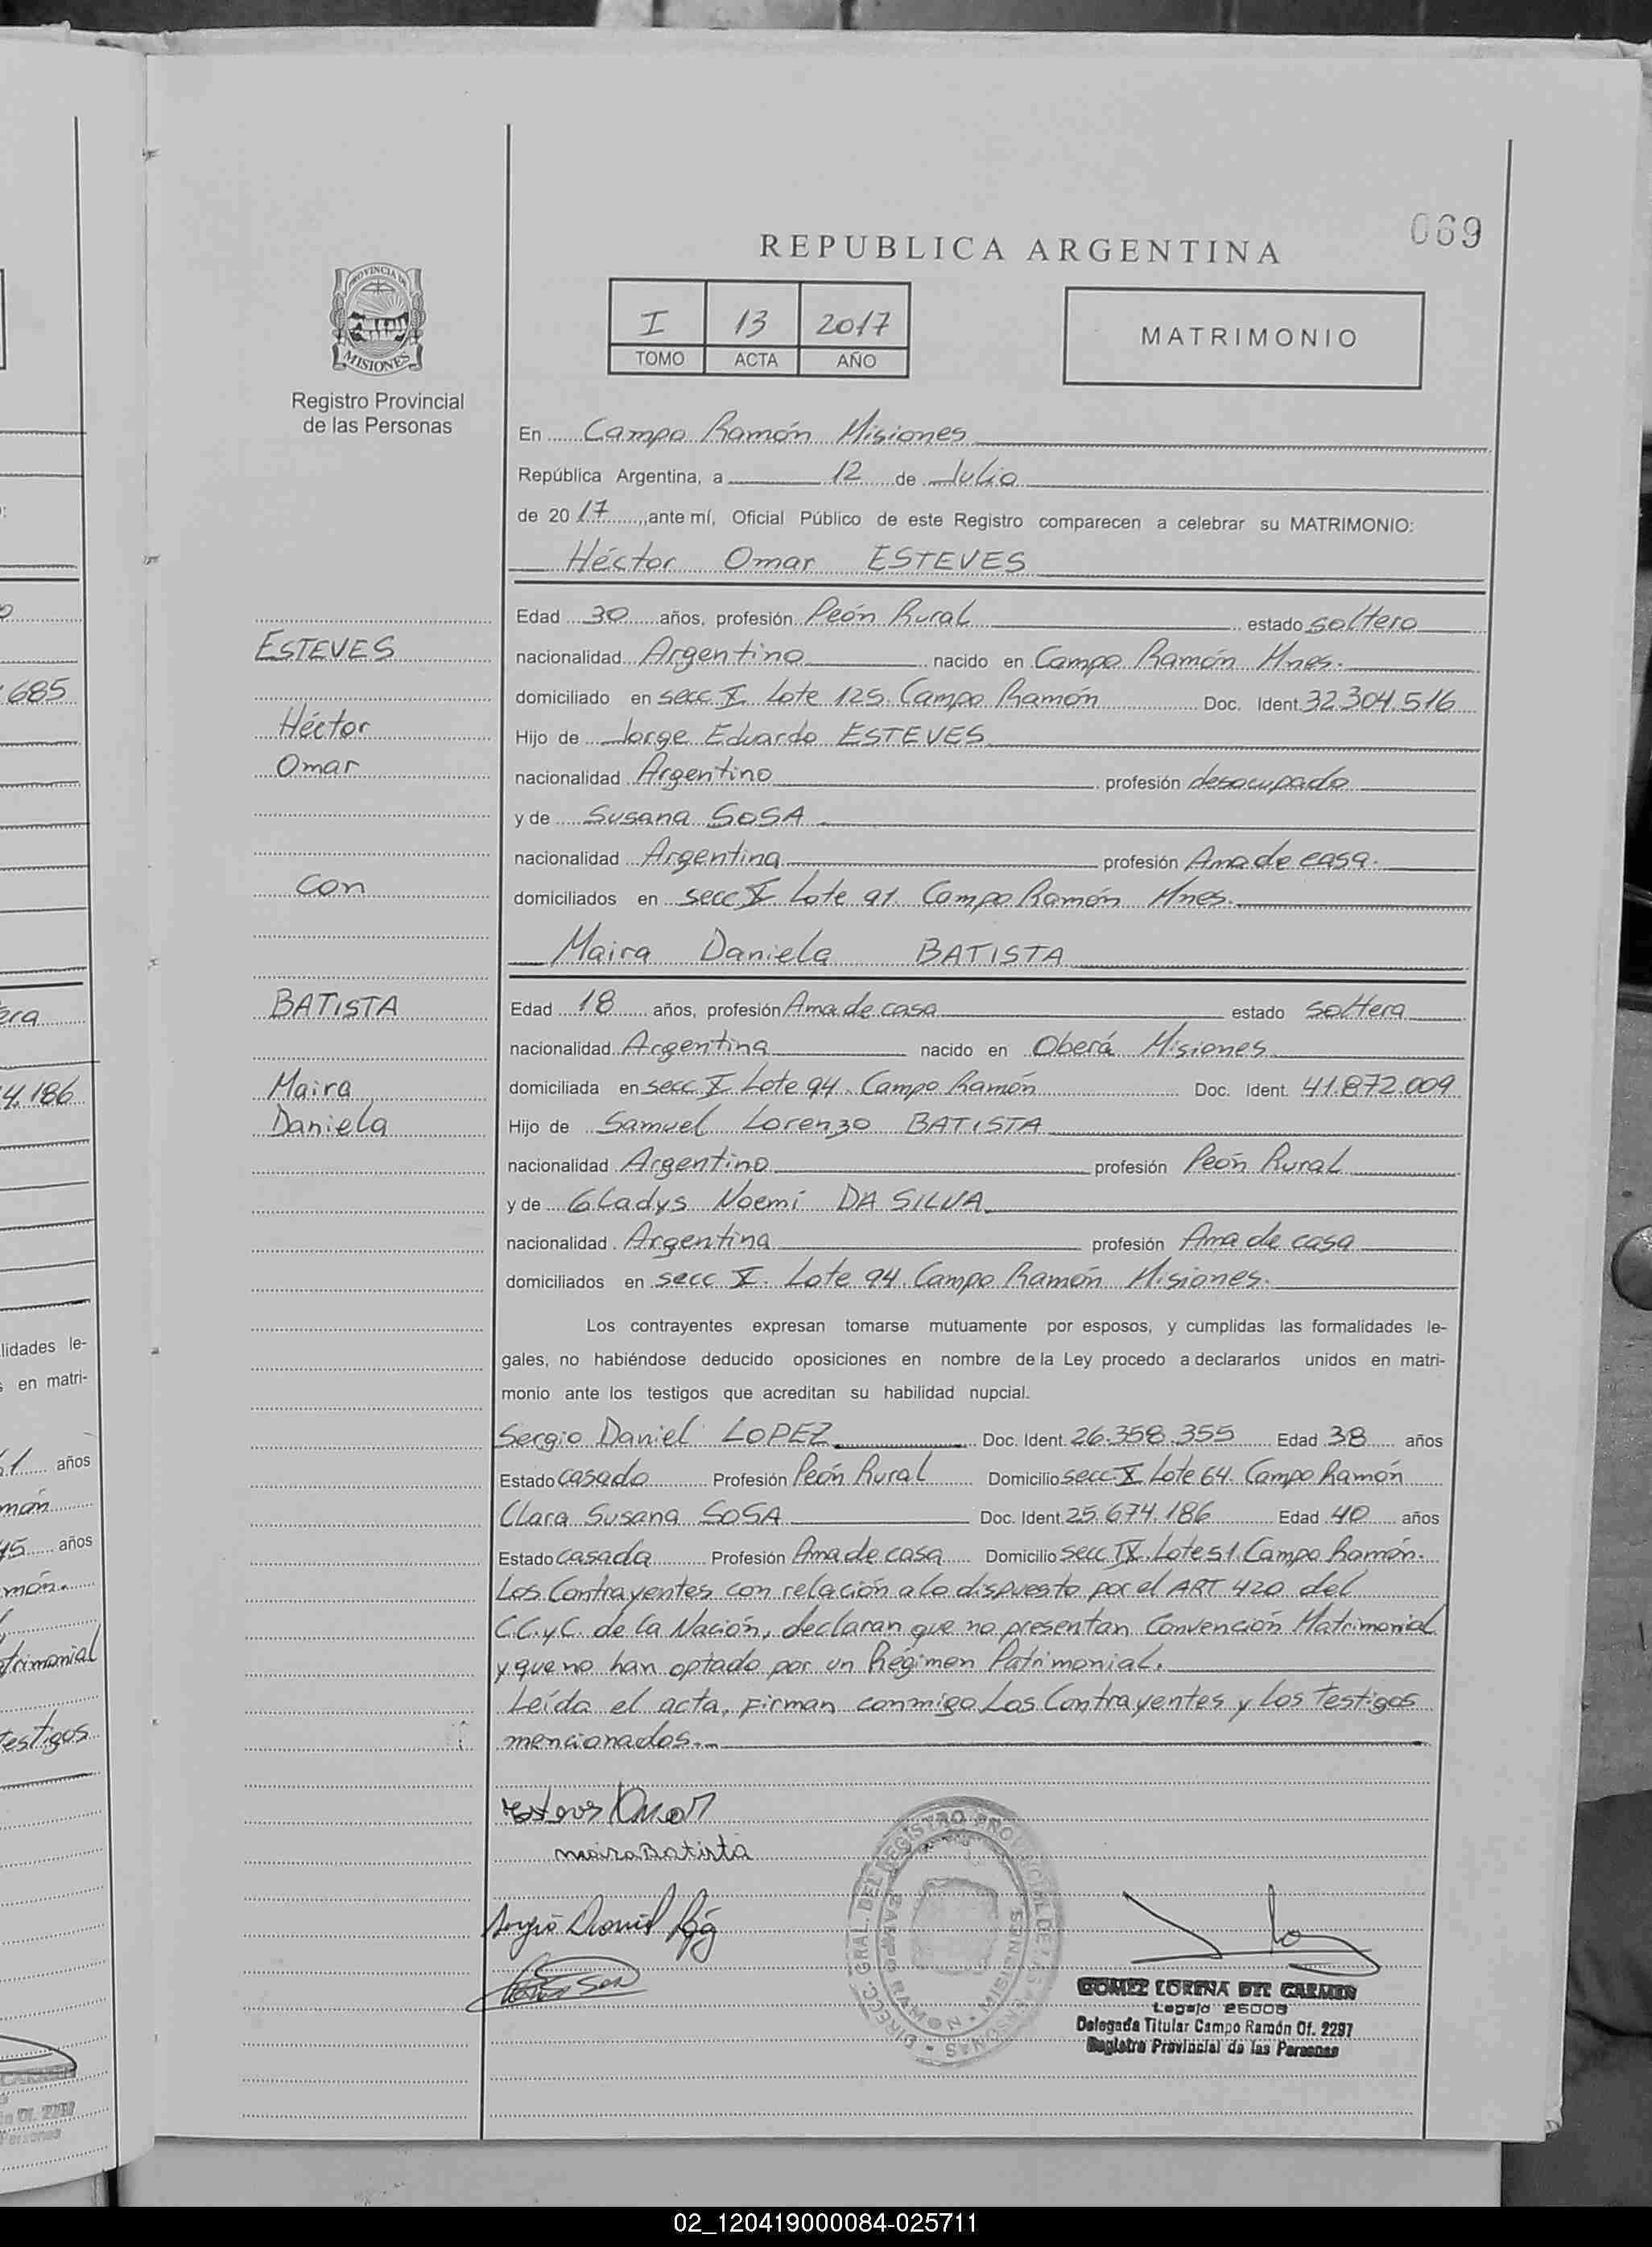 069
REPUBLICA ARGENTINA
PROVINCIA DE
MISIONES
Registro Provincial
de las Personas
I 13 2017
TOMO ACTA AÑO
MATRIMONIO
En Campo Ramón Misiones
República Argentina, a 12 de Julio
de 2017, ante mí, Oficial Público de este Registro comparecen a celebrar su MATRIMONIO:
Héctor Omar ESTEVES
Edad 30 años, profesión Peón Rural estado soltero
ESTEVES
nacionalidad Argentino nacido en Campo Ramón Mnes.
domiciliado en secc X Lote 125. Campo Ramón Doc. Ident. 32.304.516
Héctor
Hijo de Jorge Eduardo ESTEVES
Omar
nacionalidad Argentino profesión desocupado
y de Susana SOSA
nacionalidad Argentina profesión Ama de casa.
con
domiciliados en secc X Lote 91. Campo Ramón Mnes.
Maira Daniela BATISTA
BATISTA
Edad 18 años, profesión Ama de casa estado soltera
nacionalidad Argentina nacido en Oberá Misiones
Maira
domiciliada en secc X Lote 94. Campo Ramón Doc. Ident. 41.872.009
Daniela
Hijo de Samuel Lorenzo BATISTA
nacionalidad Argentino profesión Peón Rural
y de Gladys Noemí DA SILVA
nacionalidad Argentina profesión Ama de casa
domiciliados en secc X. Lote 94. Campo Ramón Misiones.
Los contrayentes expresan tomarse mutuamente por esposos, y cumplidas las formalidades le-
gales, no habiéndose deducido oposiciones en nombre de la Ley procedo a declararlos unidos en matri-
monio ante los testigos que acreditan su habilidad nupcial.
Sergio Daniel LOPEZ Doc. Ident. 26.358.355 Edad 38 años
Estado casado Profesión Peón Rural Domicilio secc. X Lote 64. Campo Ramón
Clara Susana SOSA Doc. Ident. 25.674.186 Edad 40 años
Estado casada Profesión Ama de casa Domicilio secc IX. Lote 51. Campo Ramón.
Los Contrayentes con relación a lo dispuesto por el ART 420 del
C.C.y C. de la Nación, declaran que no presentan Convención Matrimonial
y que no han optado por un Régimen Patrimonial.
Leída el acta, Firman conmigo Los Contrayentes y los Testigos
mencionados.
Esteves Omar
maira Batista
Sergio Daniel
DIRECC. GRAL. DEL REGISTRO PROVINCIAL DE LAS PERSONAS
CAMPO RAMON - MISIONES
GOMEZ LORENA DEL CARMEN
Legajo 26008
Delegada Titular Campo Ramón Of. 2297
Registro Provincial de las Personas
685
era
4.186
lidades le-
en matri-
años
món
45 años
món.
trimonial
Testigos
02_120419000084-025711